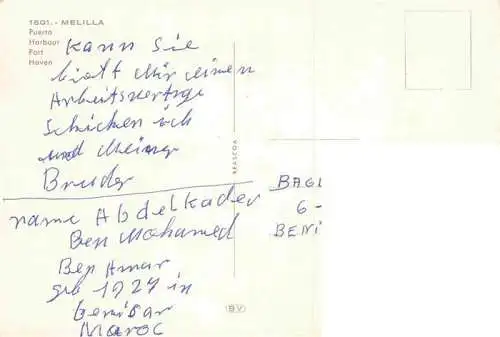 1801.- MELILLA
Puerto
Harbour
Port
Haven
Kann Sie
bitt Mir einen
Arbeitsvertrag
Schicken ich
und Meiner
Bruder
name Abdelkader
Ben Mohamed
Ben Amar
geb 1927 in
Benisar
Maroc
BEASCOA
BV
BAGL
6-
BENI